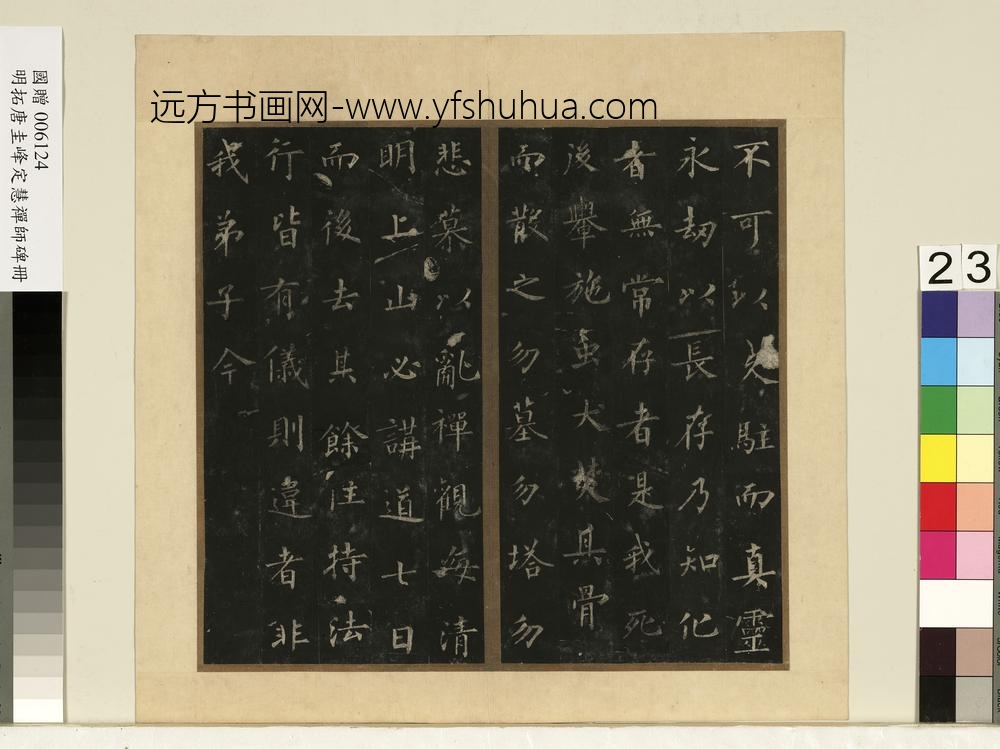 國贈 006124
明拓唐圭峰定慧禪師碑冊
远方书画网-www.yfshuhua.com
不可以久駐而真靈
永劫以長存乃知化
者無常存者是我死
後轝施虫犬焚其骨
而散之勿墓勿塔勿
悲慕以亂禪觀每清
明上山必講道七日
而後去其餘住持法
行皆有儀則違者非
我弟子今
23